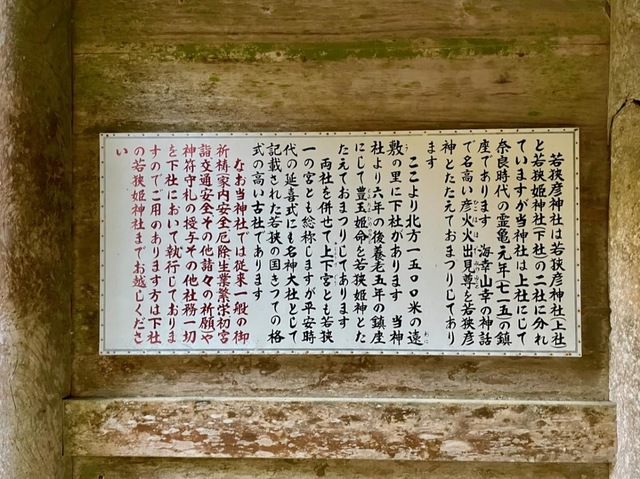 若狭彦神社は若狭彦神社(上社)
と若狭姫神社(下社)の二社に分れ
ていますが当神社は上社にして
奈良時代の霊亀元年(七一五)の鎮
座であります 海幸山幸の神話
で名高い彦火火出見尊を若狭彦
神とたたえておまつりしてあり
ます
ここより北方一五〇〇米の遠
敷の里に下社があります 当神
社より六年の後養老五年の鎮座
にして豊玉姫命を若狭姫神とた
たえておまつりしてあります
両社を併せて上下宮とも若狭
一の宮とも総称しますが平安時
代の延喜式にも名神大社として
記載された若狭の国きっての格
式の高い古社であります
なお当神社では従来一般の御
祈梼家内安全厄除生業繁栄初宮
詣交通安全その他諸々の祈願や
神符守札の授与その他社務一切
を下社において執行しておりま
すのでご用のあります方は下社
の若狭姫神社までお越しくださ
い